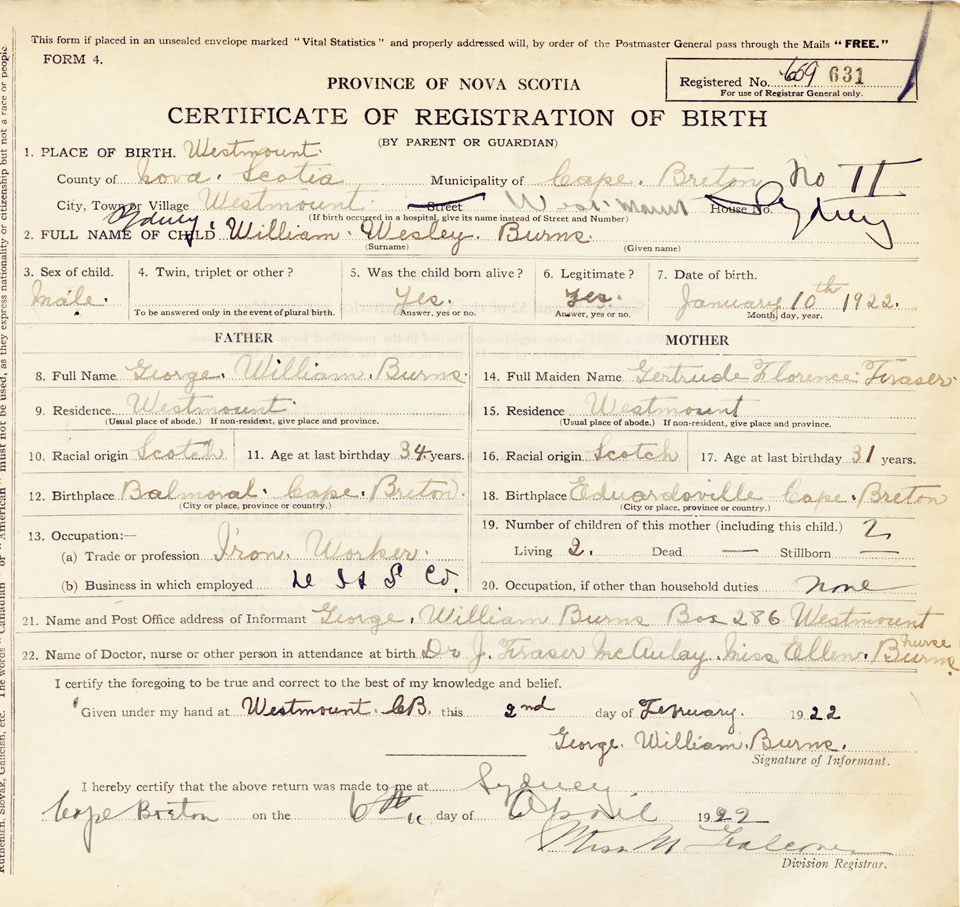 This form if placed in an unsealed envelope marked "Vital Statistics" and properly addressed will, by order of the Postmaster General pass through the Mails "FREE."
FORM 4.
Registered No. 659 631
For use of Registrar General only.
PROVINCE OF NOVA SCOTIA
CERTIFICATE OF REGISTRATION OF BIRTH
(BY PARENT OR GUARDIAN)
1. PLACE OF BIRTH. Westmount.
County of Nova. Scotia Municipality of Cape. Breton No 11
City, Town or Village Westmount Street West Mount House No. Sydney
Sydney (If birth occurred in a hospital, give its name instead of Street and Number)
2. FULL NAME OF CHILD William. Wesley. Burns.
(Surname) (Given name)
3. Sex of child. 4. Twin, triplet or other? 5. Was the child born alive? 6. Legitimate? 7. Date of birth.
Male. Yes. Yes. January 10th 1922.
To be answered only in the event of plural birth. Answer, yes or no. Answer, yes or no. Month, day, year.
FATHER
8. Full Name George. William. Burns.
9. Residence Westmount.
(Usual place of abode.) If non-resident, give place and province.
10. Racial origin Scotch 11. Age at last birthday 34 years.
12. Birthplace Balmoral. Cape. Breton.
(City or place, province or country.)
13. Occupation:—
(a) Trade or profession Iron. Worker.
(b) Business in which employed D I & S Co.
MOTHER
14. Full Maiden Name Gertrude Florence. Fraser.
15. Residence Westmount
(Usual place of abode.) If non-resident, give place and province.
16. Racial origin Scotch 17. Age at last birthday 31 years.
18. Birthplace Eduardsville Cape. Breton
(City or place, province or country.)
19. Number of children of this mother (including this child.) 2
Living 2. Dead — Stillborn —
20. Occupation, if other than household duties none
21. Name and Post Office address of Informant George. William Burns Box 286 Westmount
22. Name of Doctor, nurse or other person in attendance at birth Dr J. Fraser McAulay. Miss Ellen. Burns. Nurse
I certify the foregoing to be true and correct to the best of my knowledge and belief.
Given under my hand at Westmount. C.B. this 2nd day of February. 1922
George. William. Burns.
Signature of Informant.
I hereby certify that the above return was made to me at Sydney
Cape Breton on the 6th day of April 1922
Miss M Falcone
Division Registrar.
Ruthenian, Slovak, Galician, etc. The words "Canadian" or "American" must not be used, as they express nationality or citizenship but not a race or people.